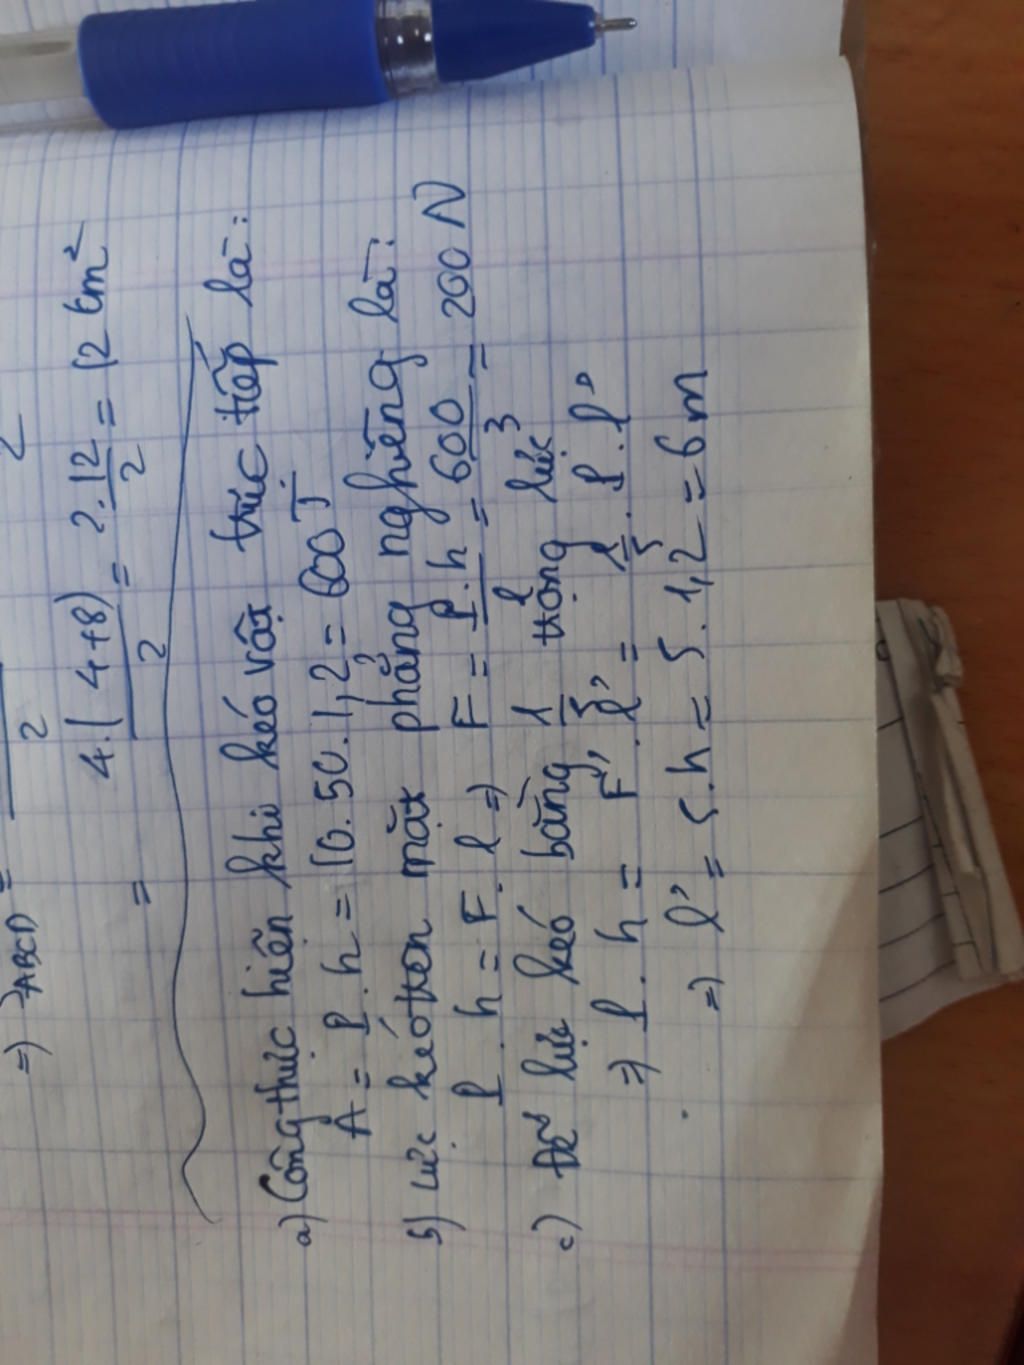 2
2
=) SABCD =
= 4.(4+8)/2 = 2.12/2 = 12 cm²
a) Công thực hiên khi kéo vật trực tiếp là:
A = P.h = 10.50.1,2 = 600 J
b) Lực kéo trên mặt phẳng nghiêng là:
P.h = F.l => F = P.h/l = 600/3 = 200 N
c) Để lực kéo bằng 1/5 trọng lực
=> P.h = F'.l' = 1/5.P.l'
=> l' = 5.h = 5.1,2 = 6 m